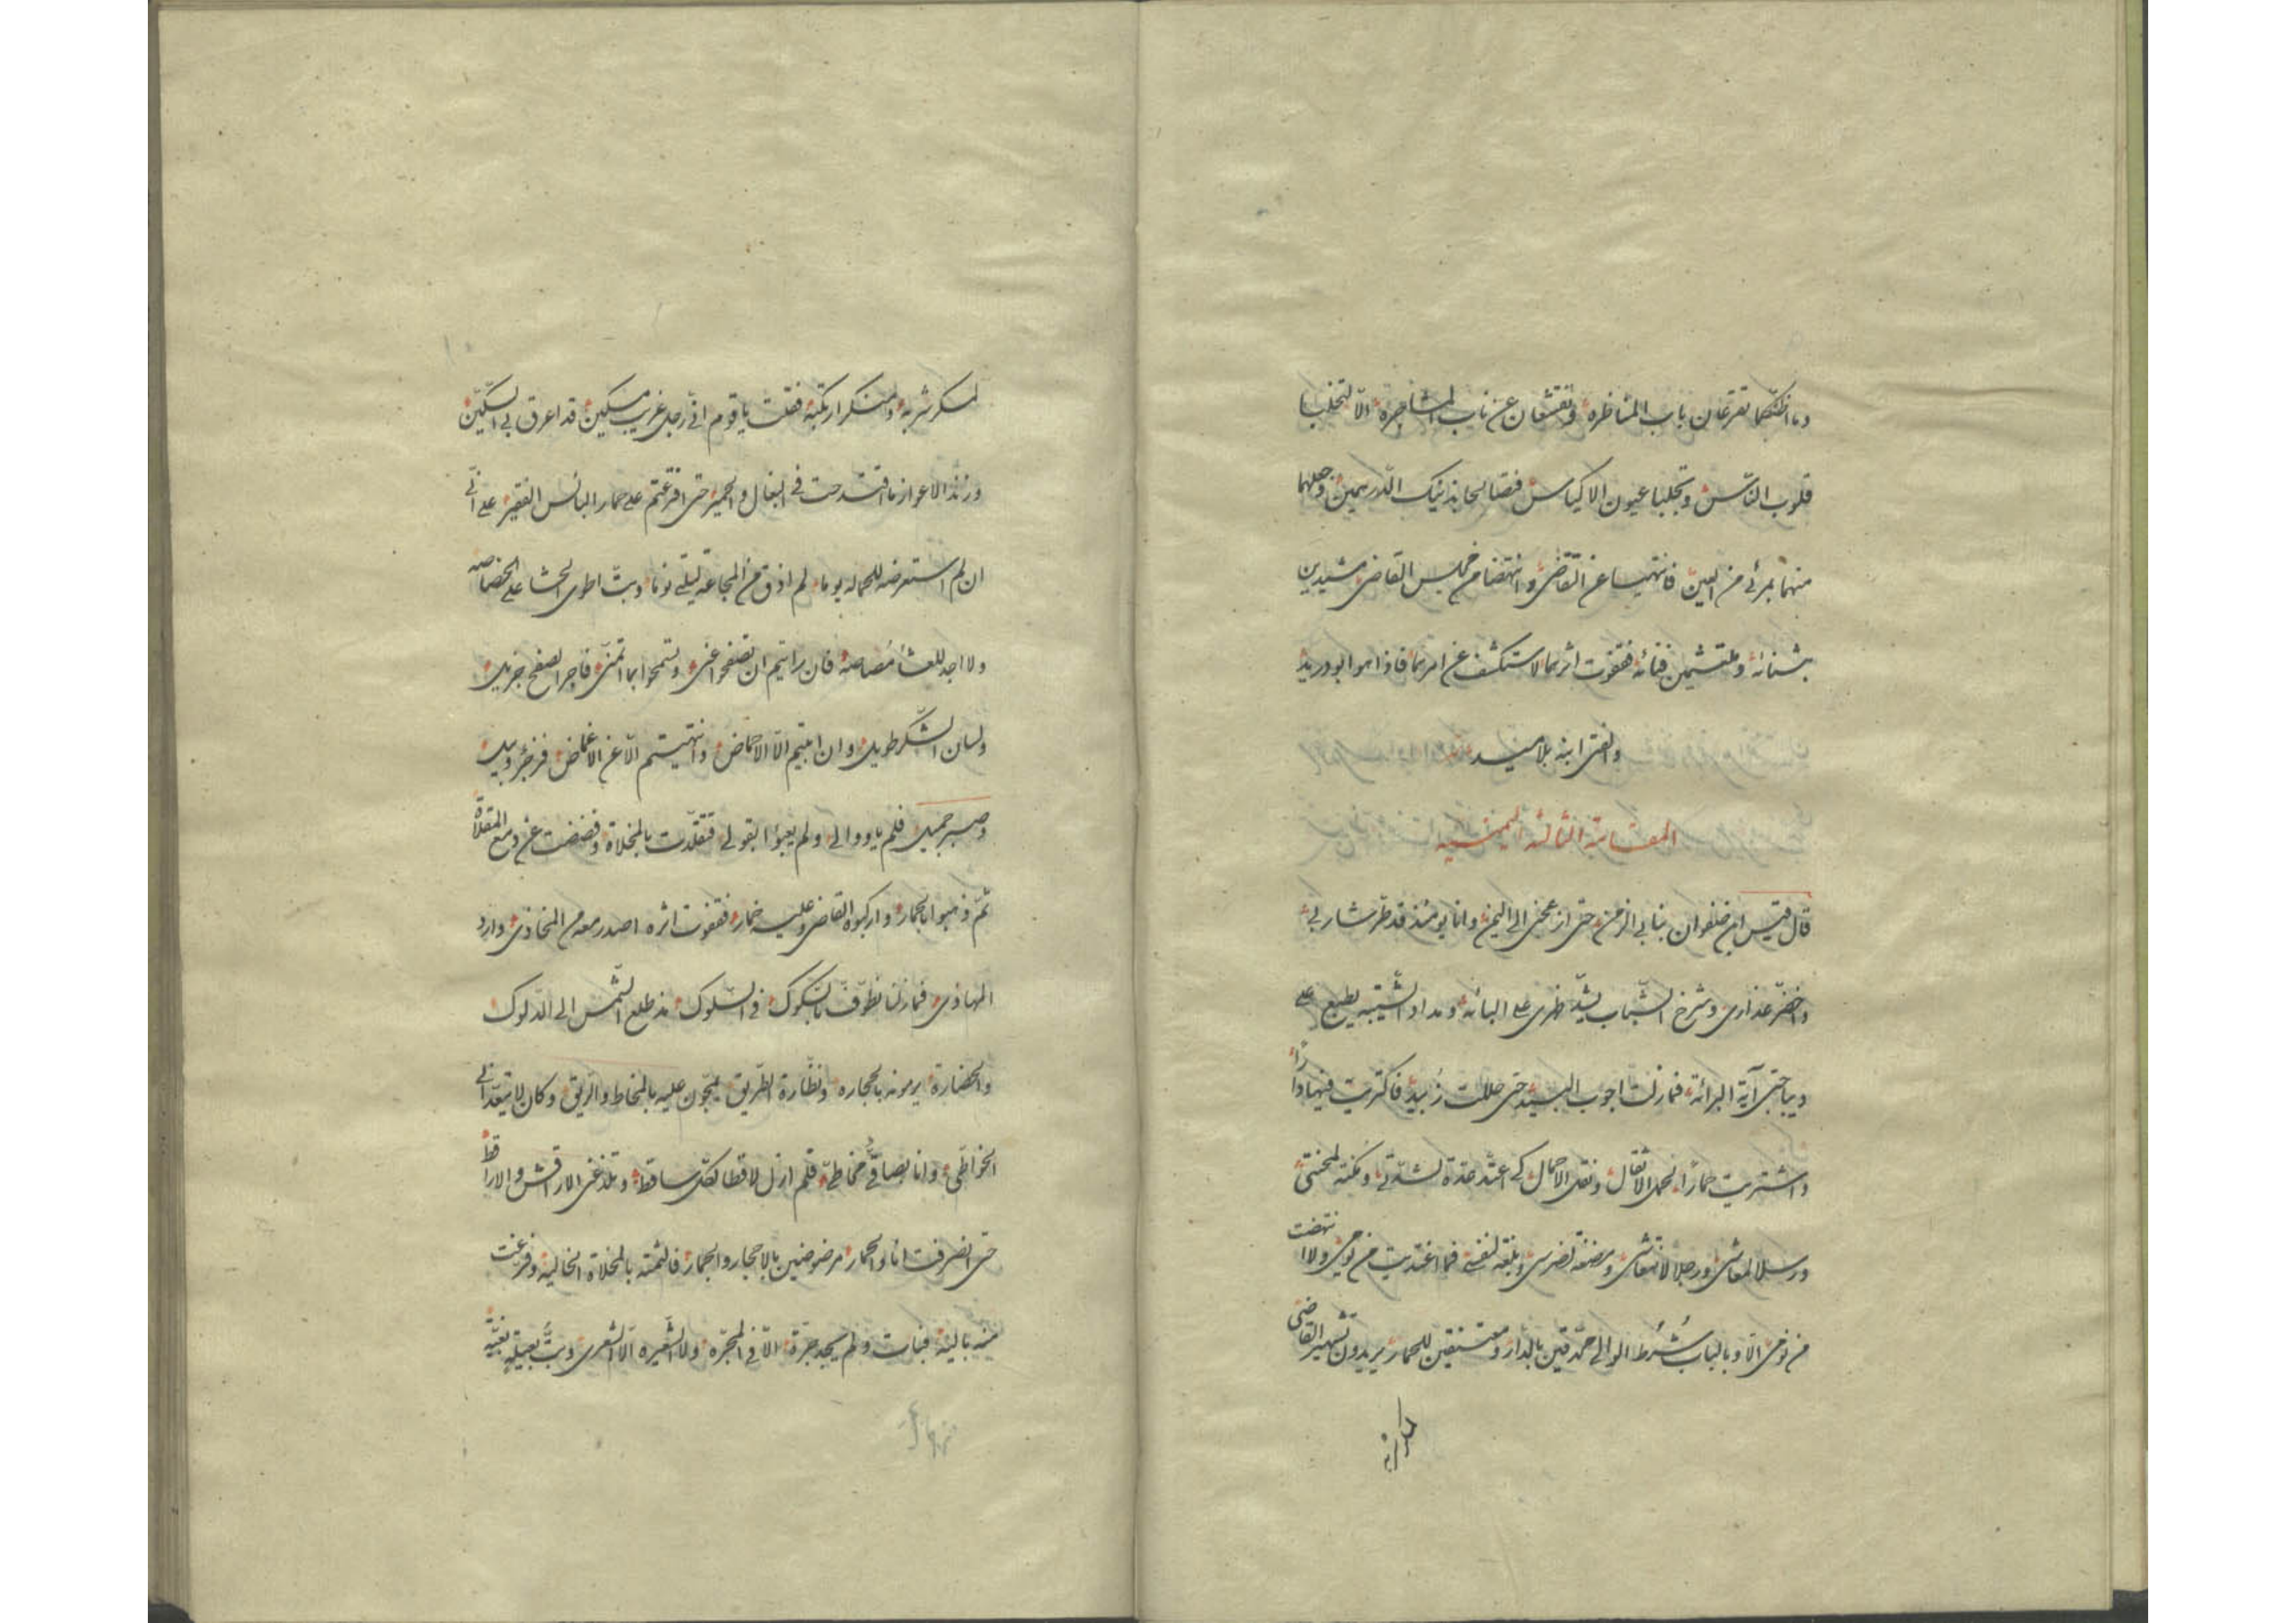 وما اظنّكما تقرعان باب المناظرة وتفتشان عن ناب المشاجرة الّا لتخلبا
قلوب النّاس وتجلبا عيون الاكياس فتصالحا بذنيك الدّرهمين وجعلهما
منهما بمرئى من العين فانتهيا عن التقاضى وانتهضا من مجلس القاضى مشيدين
بثنائه وملتثمين فنائه فقفوت اثرهما لاستكشف عن امرهما فاذا هو ابو دريد
والفتى ابنه بلا مَيد
المقامة الثالثة اليمنية
قال قيس ابن صفوان بنا بى الزمن حتى ازعجنى الى اليمن وانا يومئذ قد طرّ شاربى
واخضرّ عذارى وشرخ الشّباب يشدّ ظهرى على البائه ومداد الشّيبة يطبع على
ديباجتى آية البرائة فما زلت اجوب البيد حتى حللت زُبيد فاكتريت فيها دارًا
واشتريت حمارًا لحمل الاثقال ونقل الاحمال كى اعتدّ عدّة لشدّتى ومُكنة لمحنتى
ورسلا لمعاشى ورجلا لانتعاشى ومضغة لضرسى وبلغة لنفسى فما اغتديت من يومى ولا انتهضت
من نومى الّا وبالباب شُرَط الوالى محدقين بالدار ومعتنقين للحمار يريدون تشهير القاضى
لمسكر شربه ومنكر ارتكبه فقلت يا قوم انّى رجل غريب مسكين قد اعرق بى السّكين
وزند الاعواز ما اقتدحت فى البغال والحمير حتى اقرعتم على حمار البائس الفقير على انّى
ان لم استعرضه للحماله يوما لم اذق من المجاعة ليلتى نوما وبتّ اطوى الحشا على الخصاصه
ولا اجد للعشاء مُصاصة فان رايتم ان تصفحوا عنّى وتسمحوا بما اتمنّى فاجر الصفح جزيل
ولسان الشّكر طويل وان ابيتم الّا الاحماض وانتهيتم الّا عن الاغماض فزجرٌ وبيل
وصبر جميل فلم ياووا لى ولم يعبؤا بقولى فتقلّدت بالمخلاة وفضضت عن دمع المقلاة
ثمّ ذهبوا بالحمار واركبوه القاضى وعليه خمار فقفوت اثره اصدر معه من المخاذى وارد
المهاذى فما زلنا نطّوّف بالسّكوك فى السّلوك مذ طلع الشّمس الى الدّلوك
والحضارة يرمونه بالحجاره ونظّارة الطّريق يمجّون عليه بالمخاط والرّيق وكان لا يتعدّانى
الخواطى وانا بصاقىٌّ مخاطىّ فلم ازل لاقطا لكلّ ساقط وتلذغنى الاراقش والاراقط
حتى انصرفت انا والحمار مرضوضين بالاحجار والجمار فالثمته بالمخلاة الخالية وفرغت
منه باليه فبات ولم يجد جرّة الّا فى المجرّه ولا الشّعيره الّا الشعرى وبتُّ بعيله بغيّة